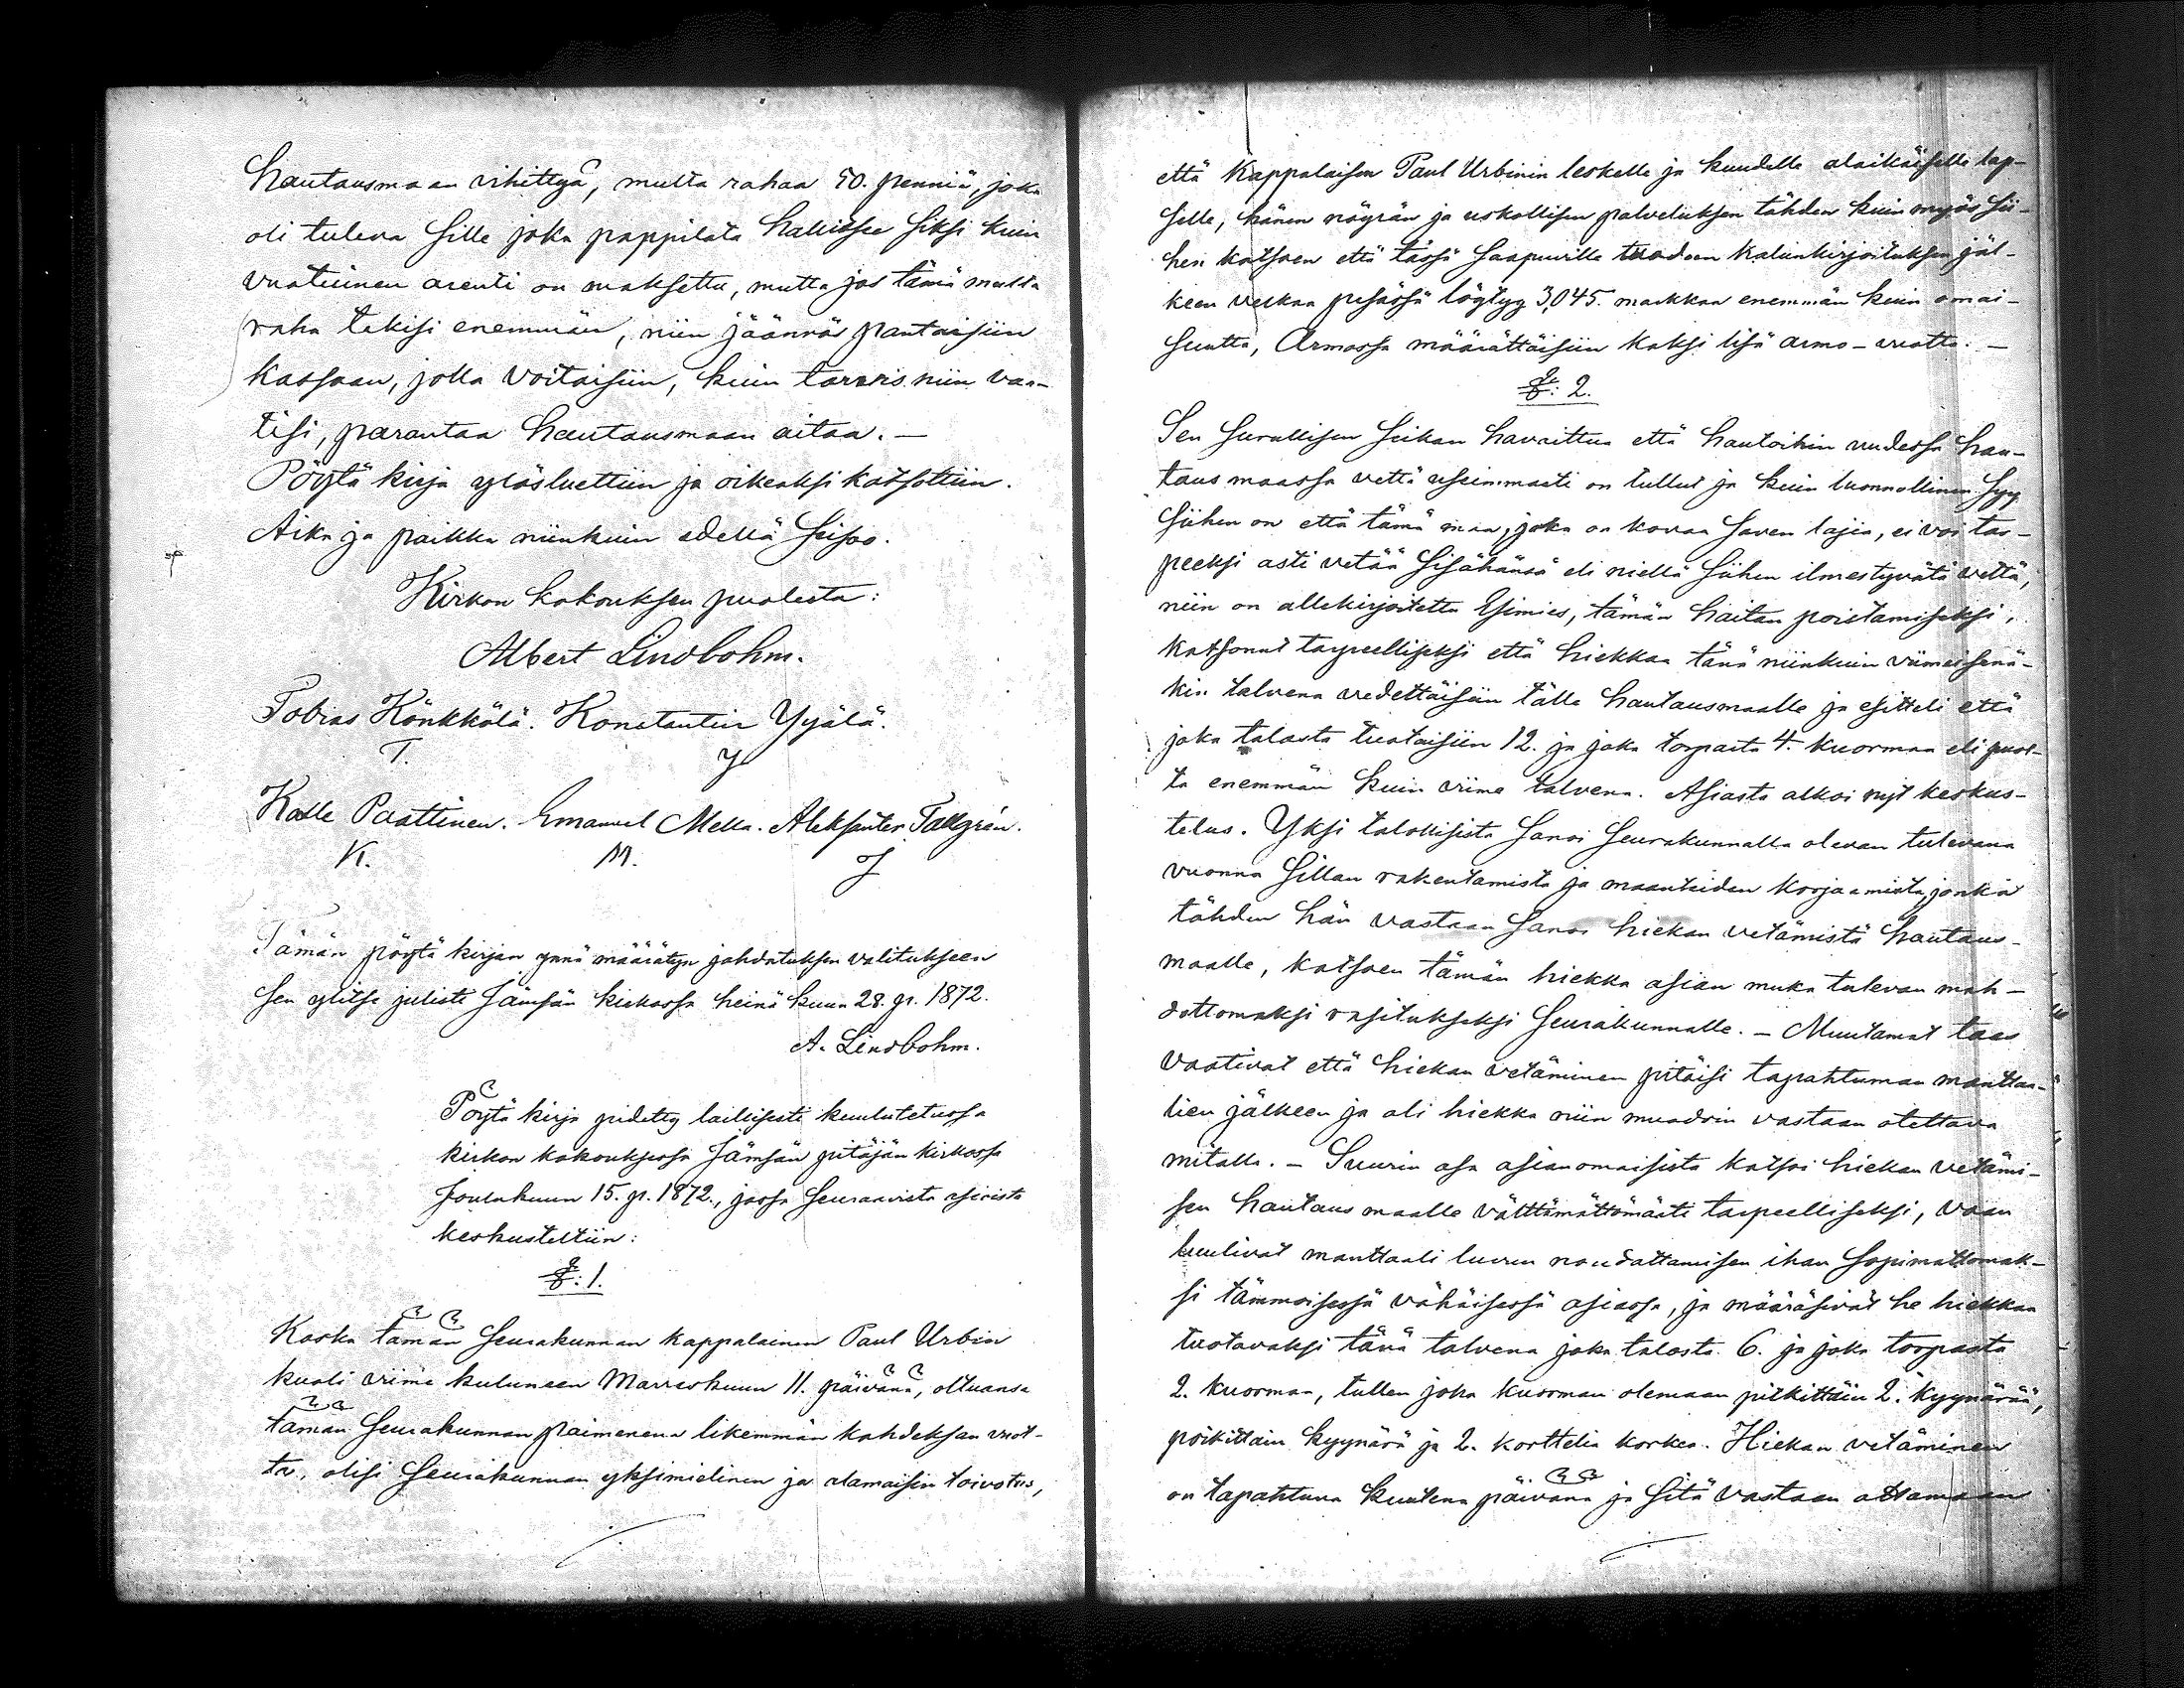 hautausmaan vihittyä, multa rahaa 50. penniä, joka
oli tuleva sille joka pappilata hallitsee siksi kuin
vuotuinen arenti on maksettu, mutta jos tämä multa
raha tekisi enemmän, niin jäännös pantaisiin
kassaan, jolla voitaisiin, kuin tarvis niin vaa-
tisi, parantaa hautausmaan aitaa. —
Pöytä kirja ylösluettiin ja oikeaksi katsottiin.
Aika ja paikka niinkuin edellä seisoo.
Kirkon kokouksen puolesta:
Albert Lindbohm.
Tobias Könkkölä. Konstantin Yijälä.
T. Y
Kalle Paattinen. Emanuel Mella. Aleksanter Tallgrén.
K. M. J
Tämän pöytä kirjan ynnä määrätyn johdatuksen valitukseen
sen ylitse julisti Jämsän kirkossa heinä kuun 28. p. 1872.
A. Lindbohm.
Pöytä kirja pidetty laillisesti kuulutetussa
kirkon kokouksessa Jämsän pitäjän kirkossa
Joulukuun 15. p. 1872., jossa seuraavista asioista
keskusteltiin:
§: 1.
Koska tämän seurakunnan kappalainen Paul Urbin
kuoli viime kuluneen Marraskuun 11. päivänä, oltuansa
tämän seurakunnan paimenena likemmän kahdeksan vuot-
ta, olisi seurakunnan yksimielinen ja alamaisin toivotus,
että Kappalaisen Paul Urbinin leskelle ja kuudelle alaikäiselle lap-
selle, hänen nöyrän ja uskollisen palveluksen tähden kuin myös sii-
hen katsoen että tässä saapuville tuodun kaluunkirjoituksen jäl-
keen velkaa pesässä löytyy 3,045. markkaa enemmän kuin omai-
suutta, Armossa määrättäisiin kaksi lisä armo-vuotta. —
§: 2.
Sen surullisen seikan havaittua että hautoihin uudessa hau-
taus maassa vettä useimmasti on tullut ja kuin luonnollinen syy
siihen on että tämä maa, joka on kovaa saven lajia, ei voi tar-
peeksi asti vetää sisähänsä eli niellä siihen ilmestyvätä vettä,
niin on allekirjoitettu Esimies, tämän haitan poistamiseksi,
katsonut tarpeelliseksi että hiekkaa tänä niinkuin viimeissenä-
kin talvena vedettäisiin tälle hautausmaalle ja esitteli että
joka talosta tuotaisiin 12. ja joka torpasta 4. kuormaa eli puol-
ta enemmän kuin viime talvena. Asiasta alkoi nyt keskus-
telus. Yksi talollisista sanoi seurakunnalla olevan tulevana
vuonna sillan rakentamista ja maanteiden korjaamista, jonka
tähden hän vastaan sanoi hiekan vetämistä hautaus-
maalle, katsoen tämän hiekka asian muka tulevan mah-
dottomaksi rasitukseksi seurakunnalle. — Muutamat taas
vaativat että hiekan vetäminen pitäisi tapahtuman manttaa-
lien jälkeen ja oli hiekka niin muodoin vastaan otettava
mitalla. — Suurin osa asianomaisista katsoi hiekan vetämi-
sen hautaus maalle välttämättömästi tarpeelliseksi, vaan
luulivat manttaali luvun noudattamisen ihan sopimattomak-
si tämmöisessä vähäisessä asiassa, ja määräsivät he hiekkaa
tuotavaksi tänä talvena joka talosta 6. ja joka torpasta
2. kuormaa, tullen joka kuorman olemaan pitkittäin 2. kyynärää,
poikittain kyynärä ja 2. korttelia korkea. Hiekan vetäminen
on tapahtuva kuutena päivänä ja sitä vastaan ottamaan